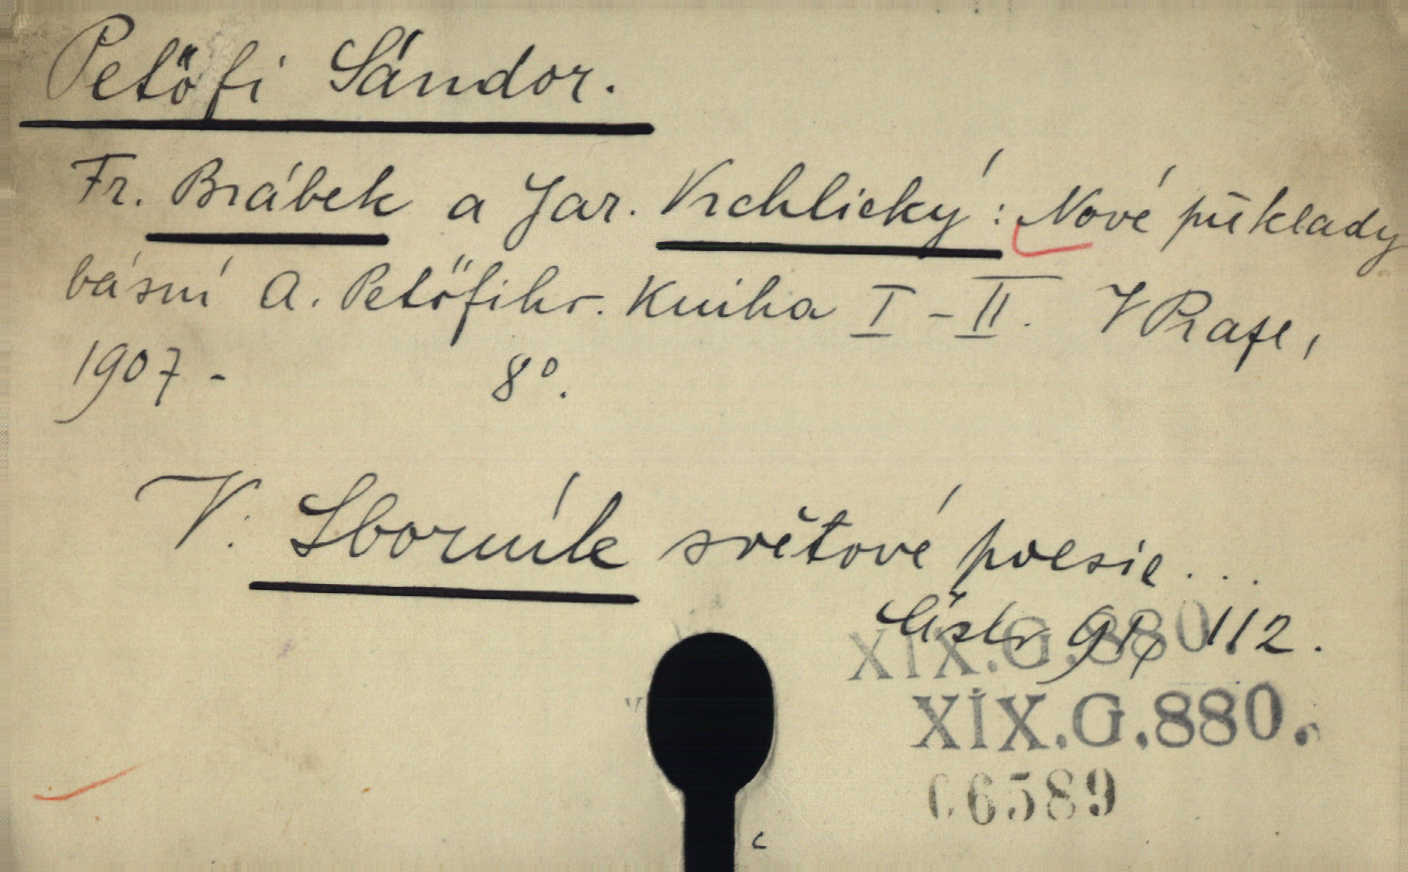 Petőfi Sándor.
Fr. Brábek a Jar. Vrchlický: Nové překlady
básní A. Petőfiho. Kniha I-II. V Praze,
1907- 8°.
V. Sborník světové poesie...
čislo 91, 112.
XIX.G.880
XIX.G.880.
06589